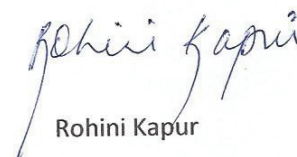 Rohini Kapur
Rohini Kapur